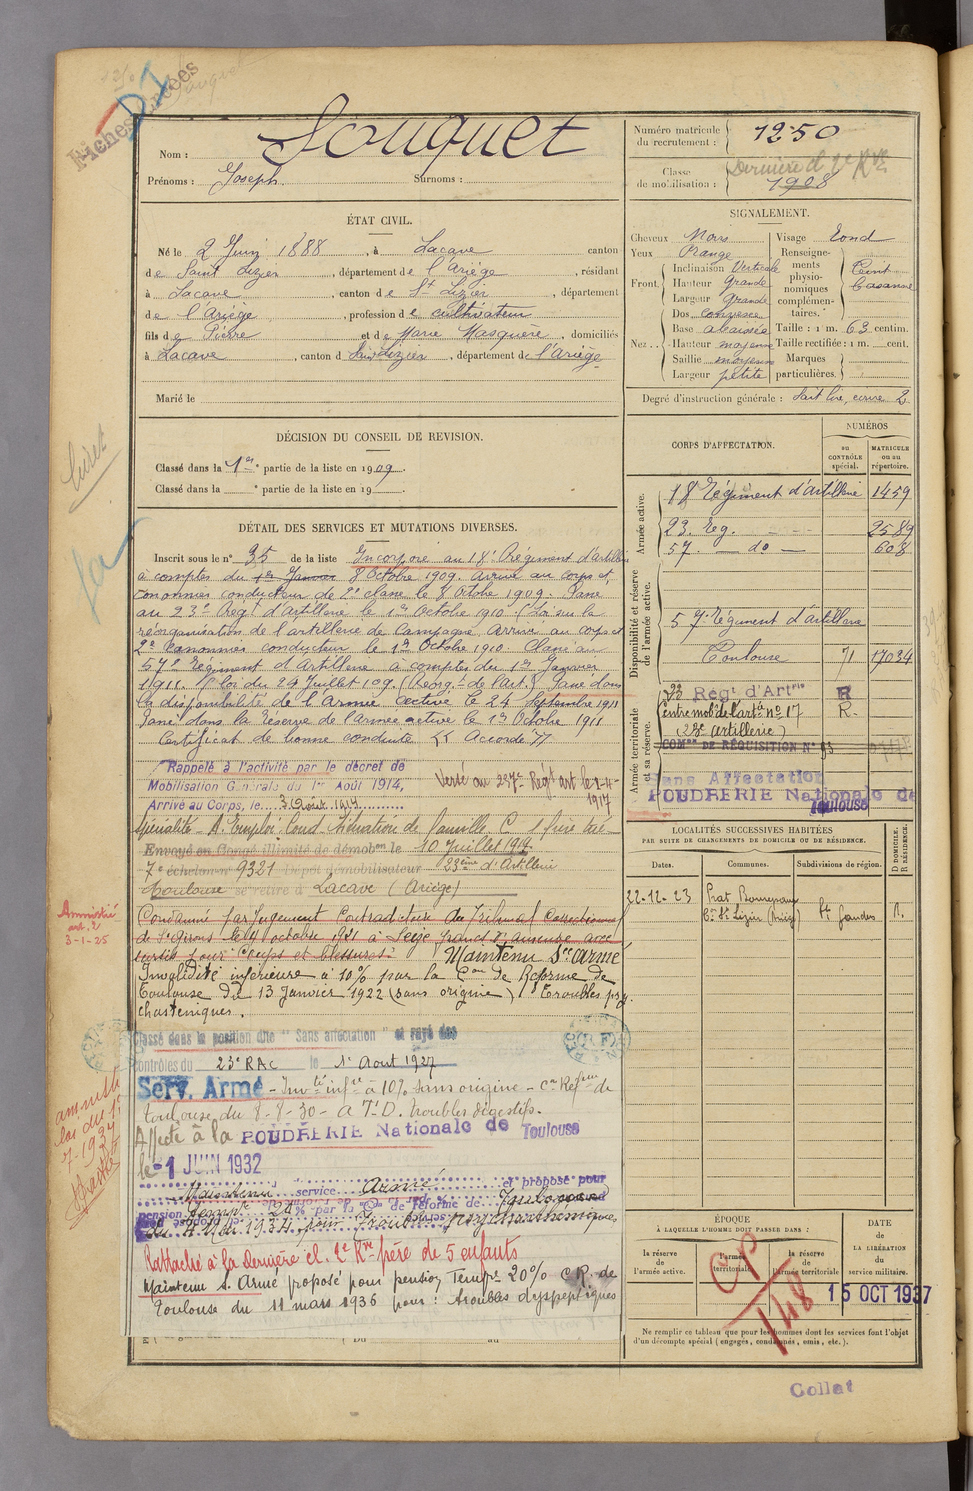 Fiches
Nom : Souquet
Prénoms : Joseph. Surnoms :
Numéro matricule du recrutement : 1250
Classe de mobilisation : 1908
Dernière cl 2e Rve
ÉTAT CIVIL.
Né le 2 Juin 1888, à Lacave canton
de Saint Lizier, département de l'Ariège, résidant
à Lacave, canton de St Lizier, département
de l'Ariège, profession de cultivateur
fils de Pierre et de Marie Masquère, domiciliés
à Lacave, canton de Saint Lizier, département de l'Ariège.
Marié le
SIGNALEMENT.
Cheveux Noirs
Yeux Orange
Front. Inclinaison Verticale
Hauteur Grande
Largeur Grande
Nez... Dos convexe
Base abaissée
Hauteur moyenne
Saillie moyenne
Largeur petite
Visage rond
Renseignements physionomiques complémentaires. Teint basané
Taille : 1 m. 63 centim.
Taille rectifiée : 1 m. cent.
Marques particulières.
Degré d'instruction générale : Sait lire, écrire 2
DÉCISION DU CONSEIL DE REVISION.
Classé dans la 1re partie de la liste en 1909.
Classé dans la e partie de la liste en 19
DÉTAIL DES SERVICES ET MUTATIONS DIVERSES.
Inscrit sous le n° 35 de la liste Incorporé au 18e Régiment d'artillerie
à compter du 1er Janvier 8 Octobre 1909. Arrivé au corps et
canonnier conducteur de 2e classe le 8 Octobre 1909. Passé
au 23e Regt d'Artillerie le 1er Octobre 1910. (Loi sur la
réorganisation de l'artillerie de Campagne. Arrivé au corps et
2e canonnier conducteur le 1er Octobre 1910. Classé au
57e Régiment d'Artillerie à compter du 1er Janvier
1911. (loi du 24 Juillet 109. (Réorgt de l'art.) Passé dans
la disponibilité de l'Armée active le 24 Septembre 1911
Passé dans la Réserve de l'armée active le 1er Octobre 1911
Certificat de bonne conduite "Accordé"
Rappelé à l'activité par le décret de
Mobilisation Générale du 1er Août 1914,
Arrivé au Corps, le 3 Août 1914
Versé au 257e Regt art le 1-4-1917
Spécialité - A. Emploi : Cond. Situation de famille C 1 frère tué
Envoyé en Congé illimité de démobon le 10 Juillet 1919.
7e échelon n° 9321 Dépôt démobilisateur 23ème d'Artillerie
Toulouse se retire à Lacave (Ariège)
Condamné par Jugement Contradictoire du Tribunal Correctionnel
de St Girons le 4 octobre 1921 à seize francs d'amende avec
sursis pour "Coups et blessures"
Maintenu Sce armé
Invalidité inférieure à 10% par la Con de Réforme de
Toulouse du 13 Janvier 1922 (sans origine) "Troubles psychasteniques.
Amnistié
art. 2
3-1-25
Classé dans la position dite "Sans affectation" et rayé des
contrôles du 23e RAC le 1er Août 1927
Serv. Armé - Invté infre à 10% sans origine - Con Réfme de
toulouse du 8-8-30 - A T. D. troubles digestifs.
Affecté à la POUDRERIE Nationale de Toulouse
le -1 JUIN 1932
Maintenu service Armé et proposé pour
pension temp. 20 % par la Con de réforme de Toulouse
Rattaché à la Dernière cl. 2e Rve père de 5 enfants
Maintenu s. Armé proposé pour pension Tempre 20% C. R. de
Toulouse du 11 mars 1936 pour : troubles dyspeptiques
amnistié
loi du
7-1934
CORPS D'AFFECTATION.
NUMÉROS
au CONTRÔLE spécial.
MATRICULE ou au répertoire.
Armée active.
18 Régiment d'Artillerie 1459
23. Reg. 2589
57. — do — 608
Disponibilité et réserve de l'armée active.
57e Régiment d'Artillerie
Toulouse 71 17034
Armée territoriale et sa réserve.
23 Régt d'Artrie R
Centre mobre de l'arta n° 17 R.
(23e Artillerie)
COMon DE RÉQUISITION N° 83
Sans Affectation
POUDRERIE Nationale de
Toulouse
LOCALITÉS SUCCESSIVES HABITÉES
PAR SUITE DE CHANGEMENTS DE DOMICILE OU DE RÉSIDENCE.
Dates. Communes. Subdivisions de région. D DOMICILE. R RÉSIDENCE.
22-12-23 Prat Bonrepaux
Con St Lizier (Ariège) St Gaudens R.
ÉPOQUE
À LAQUELLE L'HOMME DOIT PASSER DANS :
la réserve de l'armée active.
l'armée territoriale.
la réserve de l'armée territoriale
DATE DE LA LIBÉRATION du service militaire.
15 OCT 1937
CP
148
Ne remplir ce tableau que pour les hommes dont les services font l'objet
d'un décompte spécial (engagés, condamnés, omis, etc.).
Du au
Collat